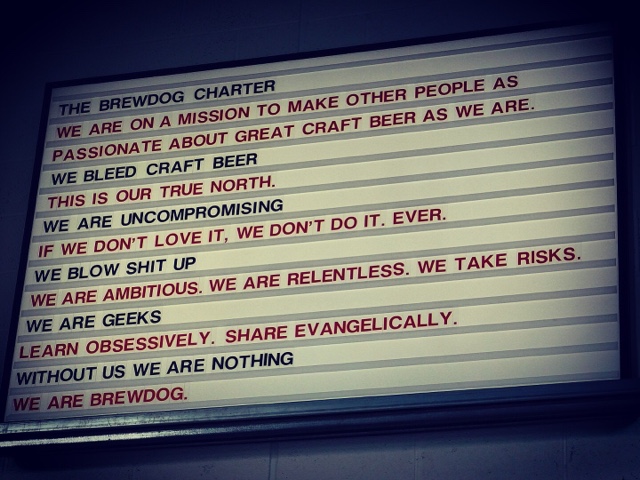 THE BREWDOG CHARTER
WE ARE ON A MISSION TO MAKE OTHER PEOPLE AS
PASSIONATE ABOUT GREAT CRAFT BEER AS WE ARE.
WE BLEED CRAFT BEER
THIS IS OUR TRUE NORTH.
WE ARE UNCOMPROMISING
IF WE DON'T LOVE IT, WE DON'T DO IT. EVER.
WE BLOW SHIT UP
WE ARE AMBITIOUS. WE ARE RELENTLESS. WE TAKE RISKS.
WE ARE GEEKS
LEARN OBSESSIVELY. SHARE EVANGELICALLY.
WITHOUT US WE ARE NOTHING
WE ARE BREWDOG.